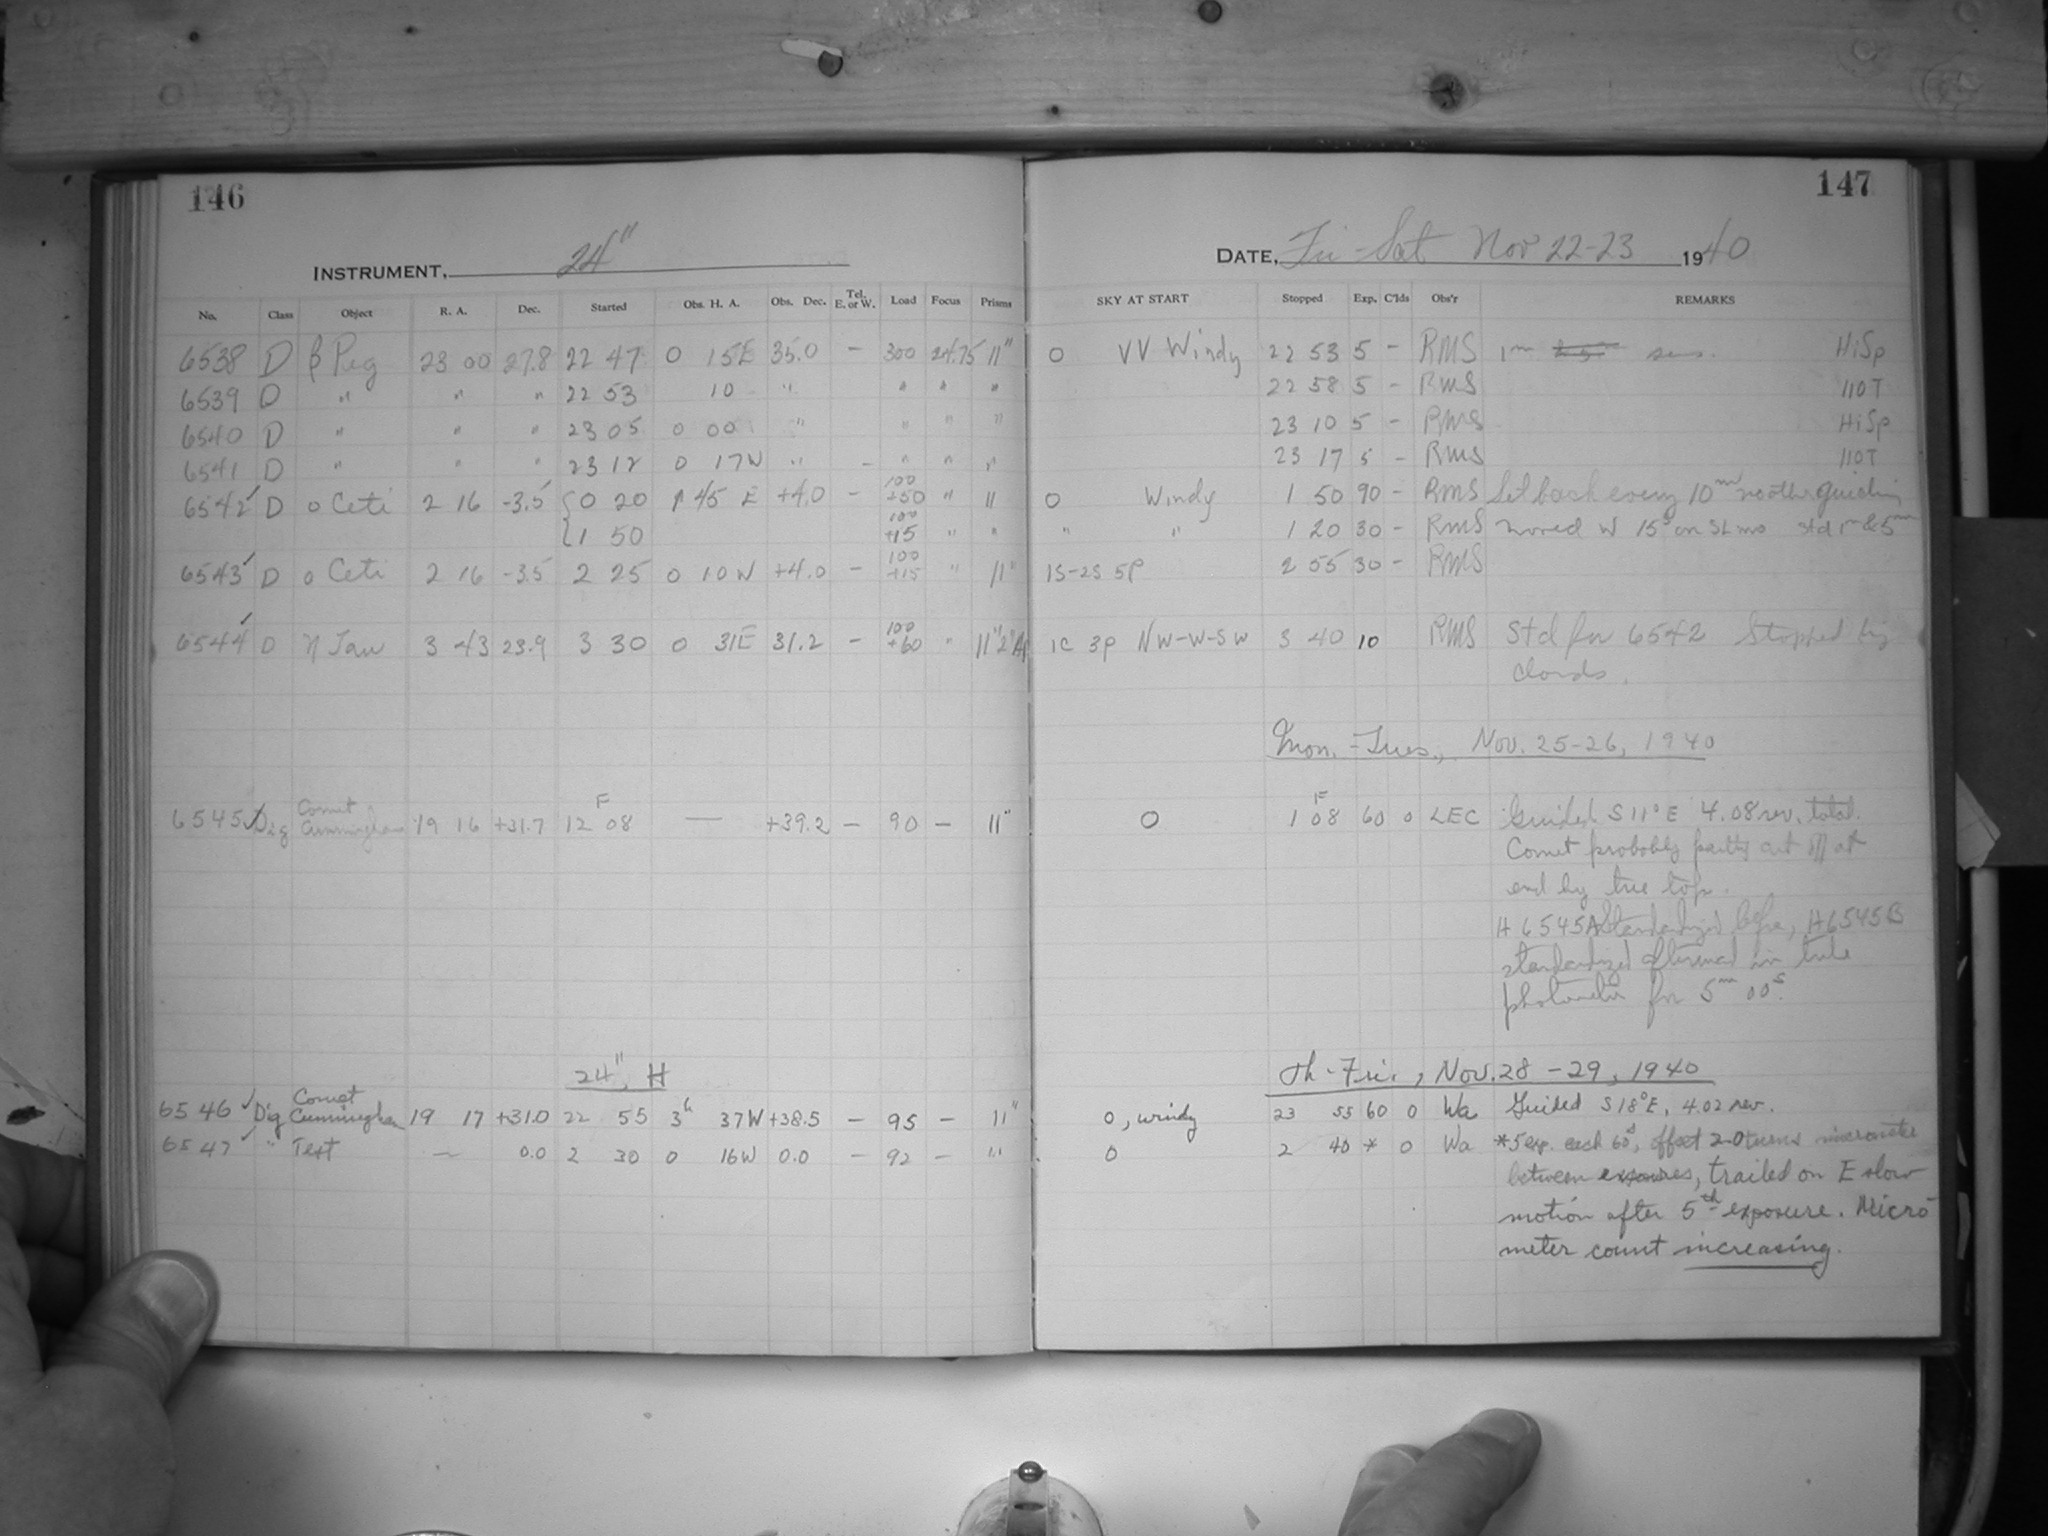 146
147
INSTRUMENT, 24"
DATE, Fri-Sat Nov 22-23 1940
No. Class Object R. A. Dec. Started Obs. H. A. Obs. Dec. Tel. E. or W. Load Focus Prisms SKY AT START Stopped Exp. C'lds Obs'r REMARKS
6538 D β Peg 23 00 27.8 22 47 0 15E 35.0 - 300 24.75 11" 0 VV Windy 22 53 5 - RMS 1m HiSp
6539 D " " " 22 53 10 " " " " 22 58 5 - RMS 110T
6540 D " " " 23 05 0 00 " " " " 23 10 5 - RMS HiSp
6541 D " " " 23 12 0 17W " - " " " 23 17 5 - RMS 110T
6542 ✓ D o Ceti 2 16 -3.5 {0 20 1 45 E +4.0 - 100 +50 " 11 0 Windy 1 50 90 - RMS Set back every 10m no other guiding
{1 50 100 +15 " " " " 1 20 30 - RMS moved W 15s on SL mo std 1m & 5m
6543 ✓ D o Ceti 2 16 -3.5 2 25 0 10W +4.0 - 100 +15 " 11" 1S-2S 5P 2 55 30 - RMS
6544 ✓ D η Tau 3 43 23.9 3 30 0 31E 31.2 - 100 +60 " 11" 2" Ap 1c 3p NW-W-SW 3 40 10 RMS Std for 6542 Stopped by
clouds.
Mon.-Tues., Nov. 25-26, 1940
6545 ✓ Dig Comet Cunningham 19 16 +31.7 12 08 F — +39.2 - 90 - 11" 0 1 08 F 60 0 LEC Guided S 11° E 4.08 rev. total.
Comet probably partly cut off at
end by tree top.
H 6545A Standardized before, H6545B
standardized afterward in tube
photometer for 5m 00s.
24", H
Th-Fri., Nov. 28-29, 1940
6546 ✓ Dig Comet Cunningham 19 17 +31.0 22 55 3h 37W +38.5 - 95 - 11" 0, windy 23 55 60 0 Wa Guided S 18° E, 4.02 rev.
6547 ✓ " Test — 0.0 2 30 0 16W 0.0 - 92 - " 0 2 40 * 0 Wa *5 exp. each 60s, offset 2.0 turns micrometer
between exposures, trailed on E slow
motion after 5th exposure. Micro-
meter count increasing.